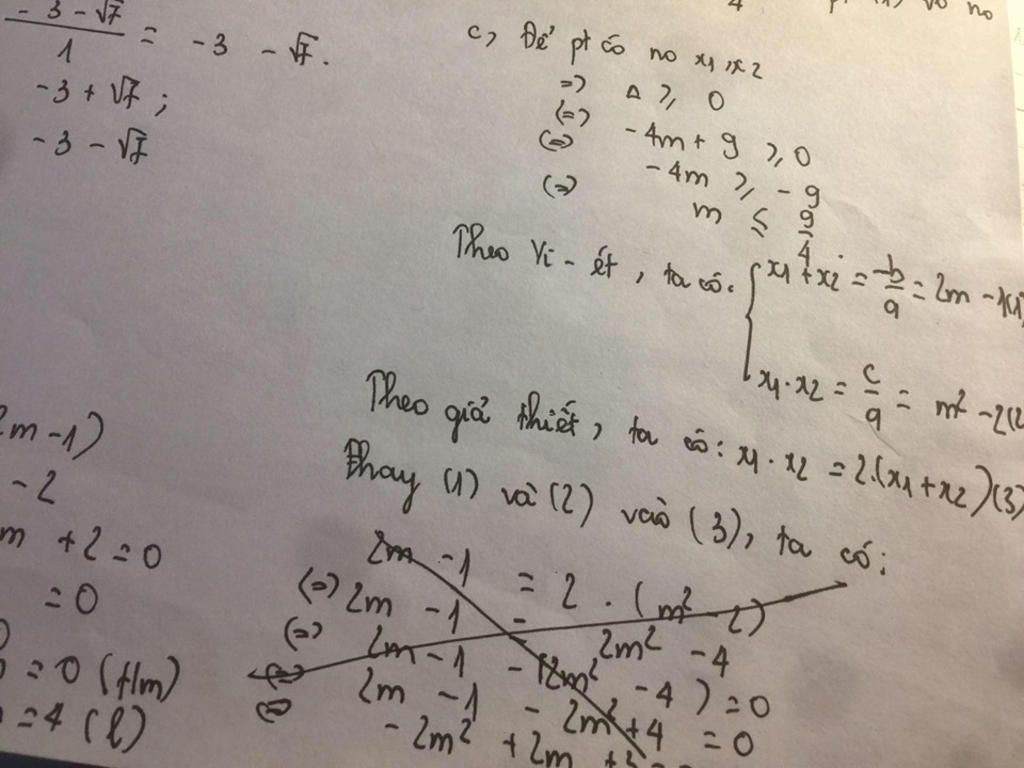 - 3 - √7 / 1 = -3 - √7.
-3 + √7 ;
-3 - √7
2m - 1)
- 2
m + 2 = 0
= 0
= 0 (t/m)
= 4 (l)
no
c, Để pt có no x1, x2
=> Δ ⩾ 0
(=) -4m + 9 ⩾ 0
(=) -4m ⩾ -9
(=) m ≤ 9/4
Theo Vi-ét, ta có: { x1 + x2 = -b/a = 2m - 1 (1)
x1 . x2 = c/a = m² - 2 (2
Theo giả thiết, ta có: x1 . x2 = 2.(x1 + x2) (3)
Thay (1) và (2) vào (3), ta có:
2m - 1 = 2 . (m² - 2)
(=) 2m - 1 = 2m² - 4
(=) 2m - 1 - (2m² - 4) = 0
(=) 2m - 1 - 2m² + 4 = 0
(=) - 2m² + 2m +